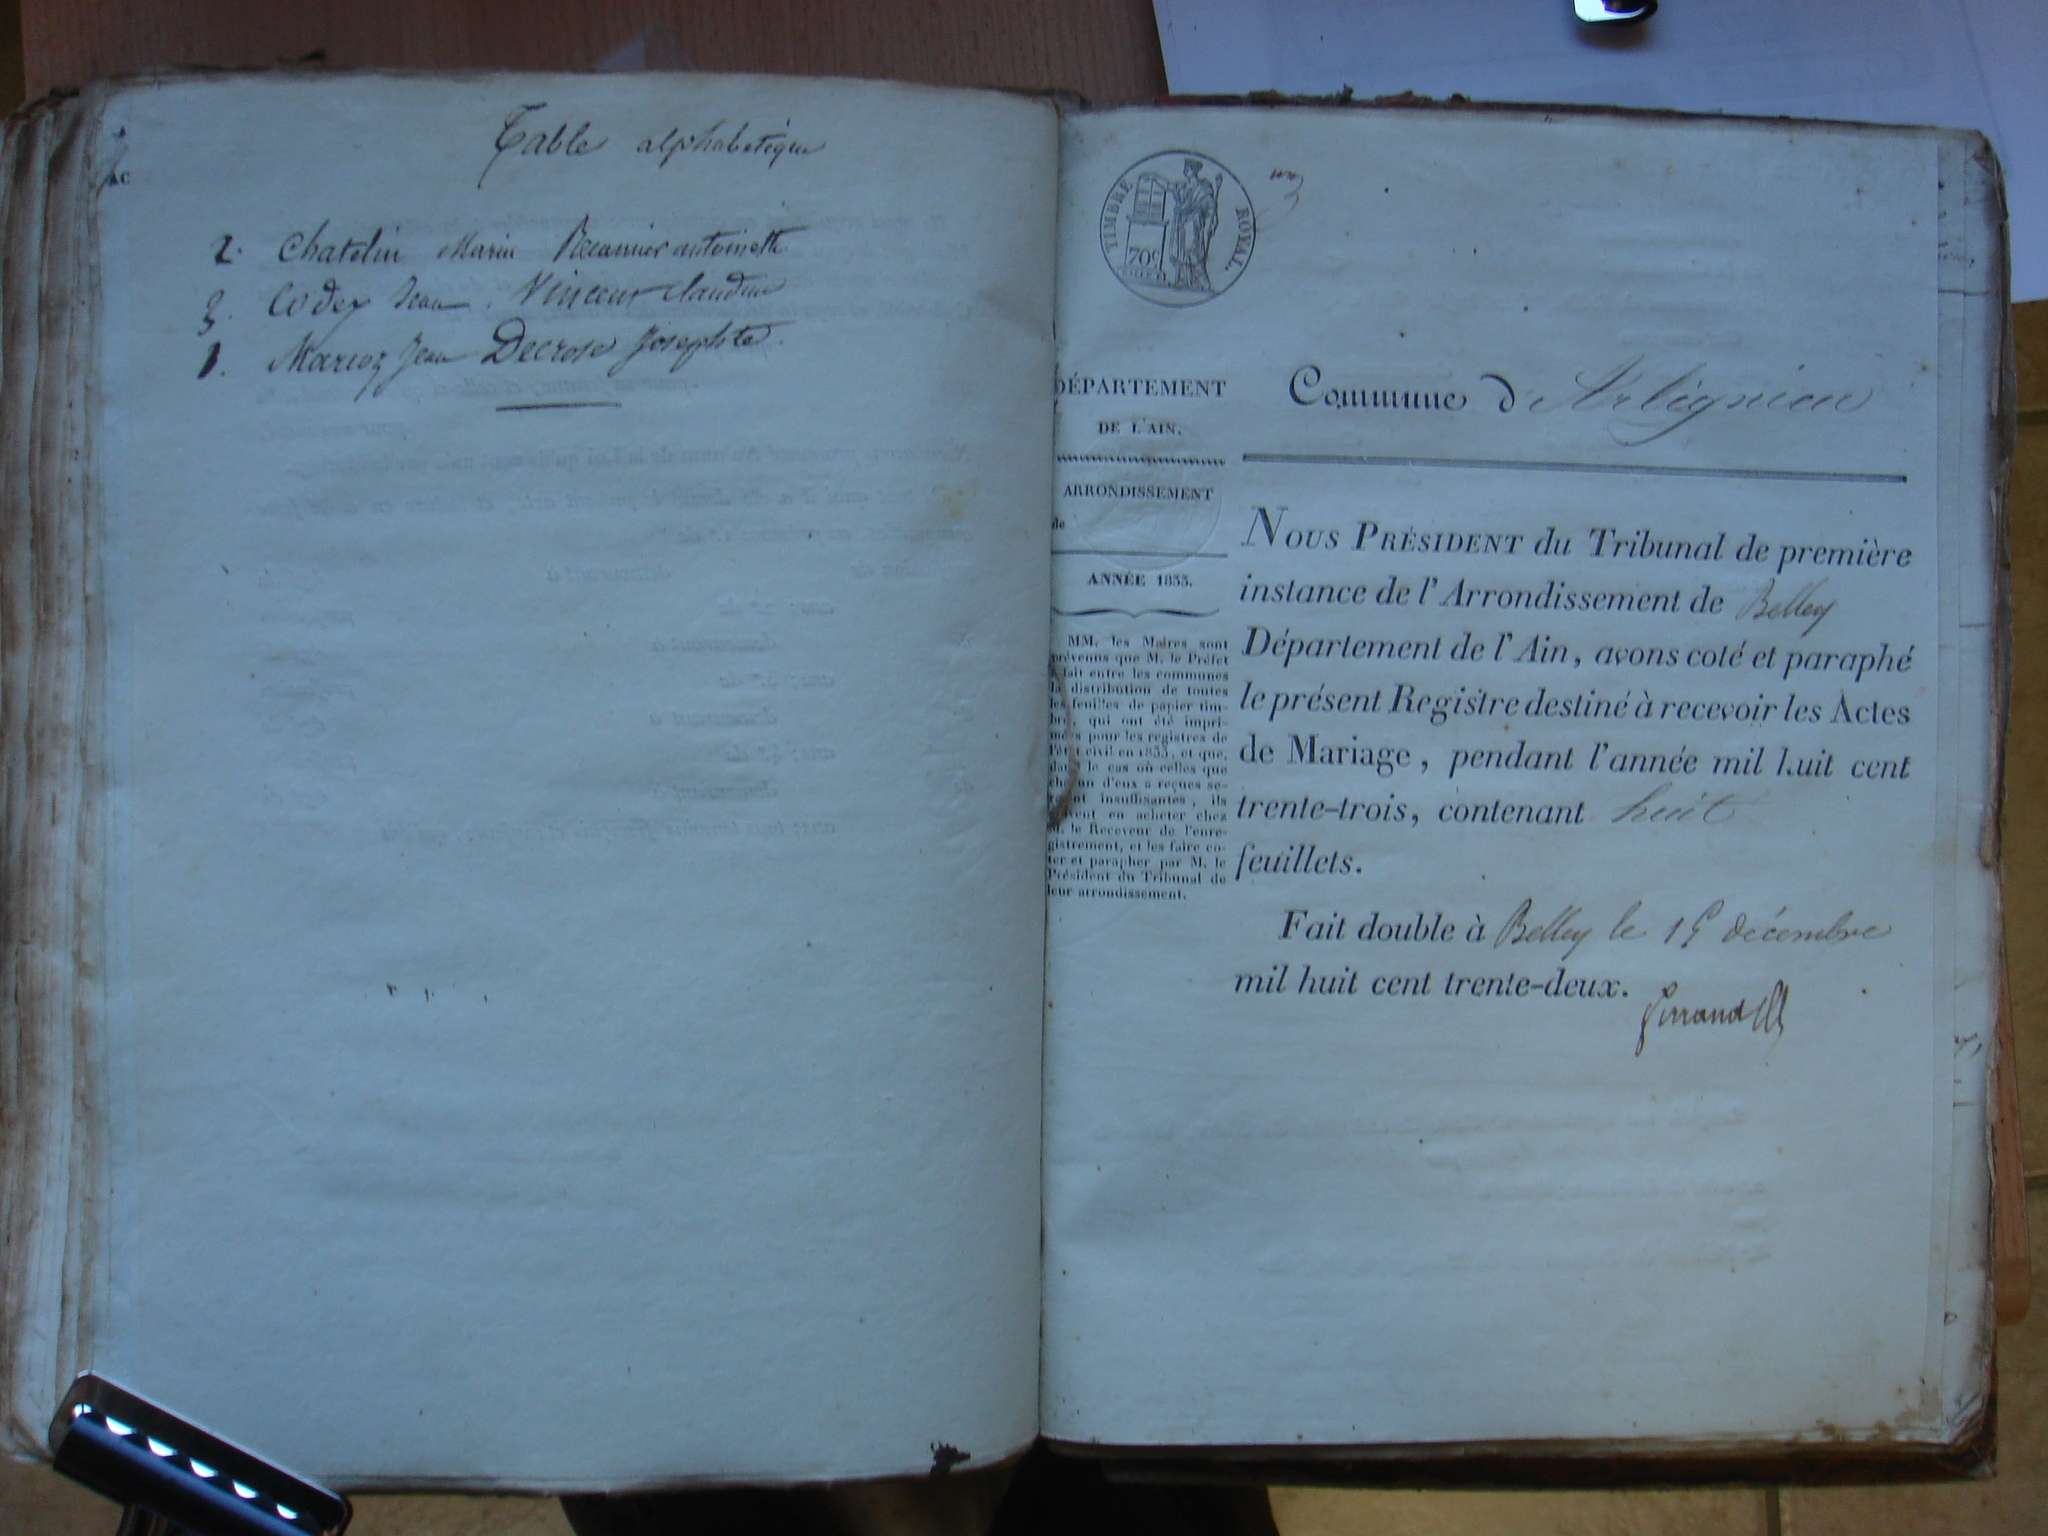 Table alphabétique
2. Chatelin Marin Recamier antoinette
3. Codex Jean. Vincent Claudine
1. Marioz Jean Decrose Josephte.
TIMBRE ROYAL.
70c
DÉPARTEMENT
DE L'AIN.
ARRONDISSEMENT
de
ANNÉE 1833.
MM. les Maires sont
prévenus que M. le Préfet
fait entre les communes
la distribution de toutes
les feuilles de papier tim-
bré qui ont été impri-
mées pour les registres de
l'état civil en 1833, et que,
dans le cas où celles que
chacun d'eux a reçues se-
raient insuffisantes, ils
doivent en acheter chez
M. le Receveur de l'enre-
gistrement, et les faire co-
ter et parapher par M. le
Président du Tribunal de
leur arrondissement.
Commune d'Arbignieu
NOUS PRÉSIDENT du Tribunal de première
instance de l'Arrondissement de Belley
Département de l'Ain, avons coté et paraphé
le présent Registre destiné à recevoir les Actes
de Mariage, pendant l'année mil huit cent
trente-trois, contenant huit
feuillets.
Fait double à Belley le 15 décembre
mil huit cent trente-deux.